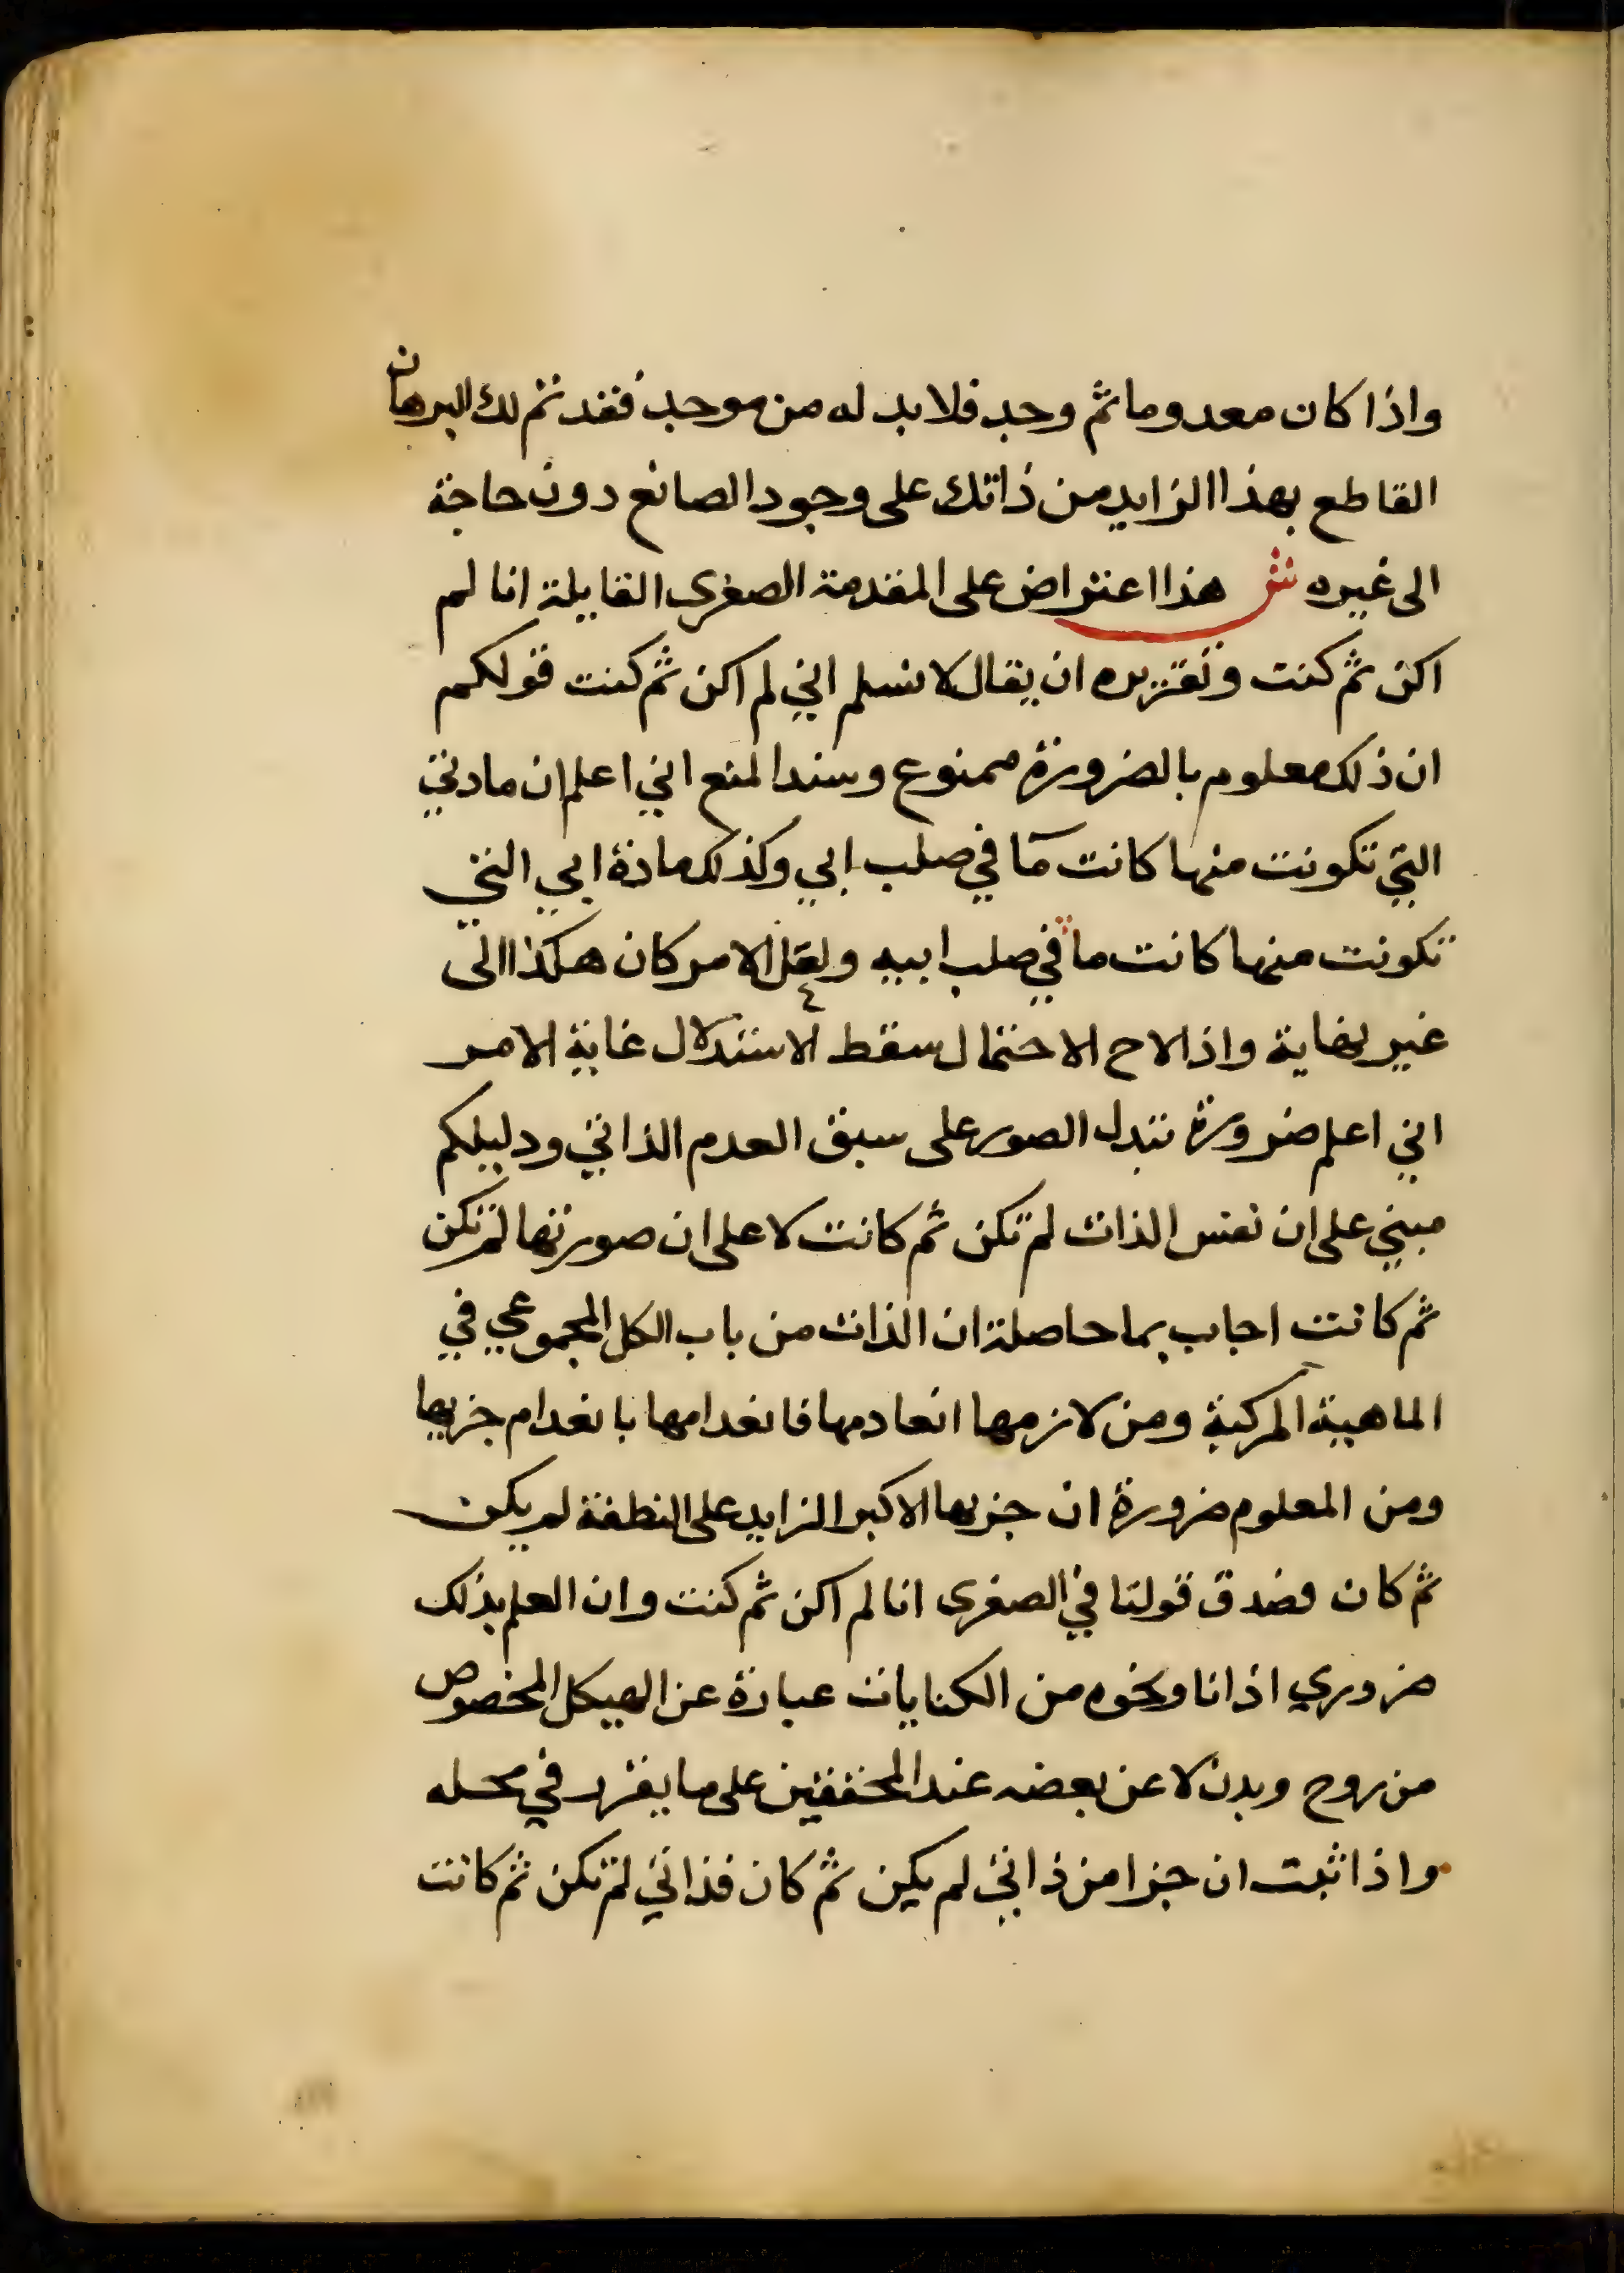 واذا كان معدوما ثم وجد فلا بد له من موجد فقد تم لك البرهان
القاطع بهذا الزايد من ذاتك على وجود الصانع دون حاجة
الى غيره ش هذا اعتراض على المقدمة الصغرى القايلة انا لم
اكن ثم كنت وتقريره ان يقال لا نسلم اني لم اكن ثم كنت قولكم
ان ذلك معلوم بالضرورة ممنوع وسند المنع اني اعلم ان مادتي
التي تكونت منها كانت مآ في صلب ابي وكذلك مادة ابي التي
تكونت منها كانت ما في صلب ابيه ولعل الامر كان هكذا الى
غير نهاية واذا لاح الاحتمال سقط الاستدلال غاية الامر
اني اعلم ضرورة تبدل الصور على سبق العدم الذاتي ودليلكم
مبني على ان نفس الذات لم تكن ثم كانت لا على ان صورتها لم تكن
ثم كانت اجاب بما حاصلة ان الذات من باب الكل المجموعي في
الماهية المركبة ومن لازمها انعادمها فانعدامها بانعدام جزيها
ومن المعلوم ضرورة ان جزيها الاكبر الزايد على النطفة لم يكن
ثم كان فصدق قولنا في الصغرى انا لم اكن ثم كنت وان العلم بذلك
ضروري اذ انا ونحوه من الكنايات عبارة عن الهيكل المخصوص
من روح وبدن لا عن بعضه عند المحققين على ما يقرر في محله
واذا ثبت ان جزا من ذاتي لم يكن ثم كان فذاتي لم تكن ثم كانت